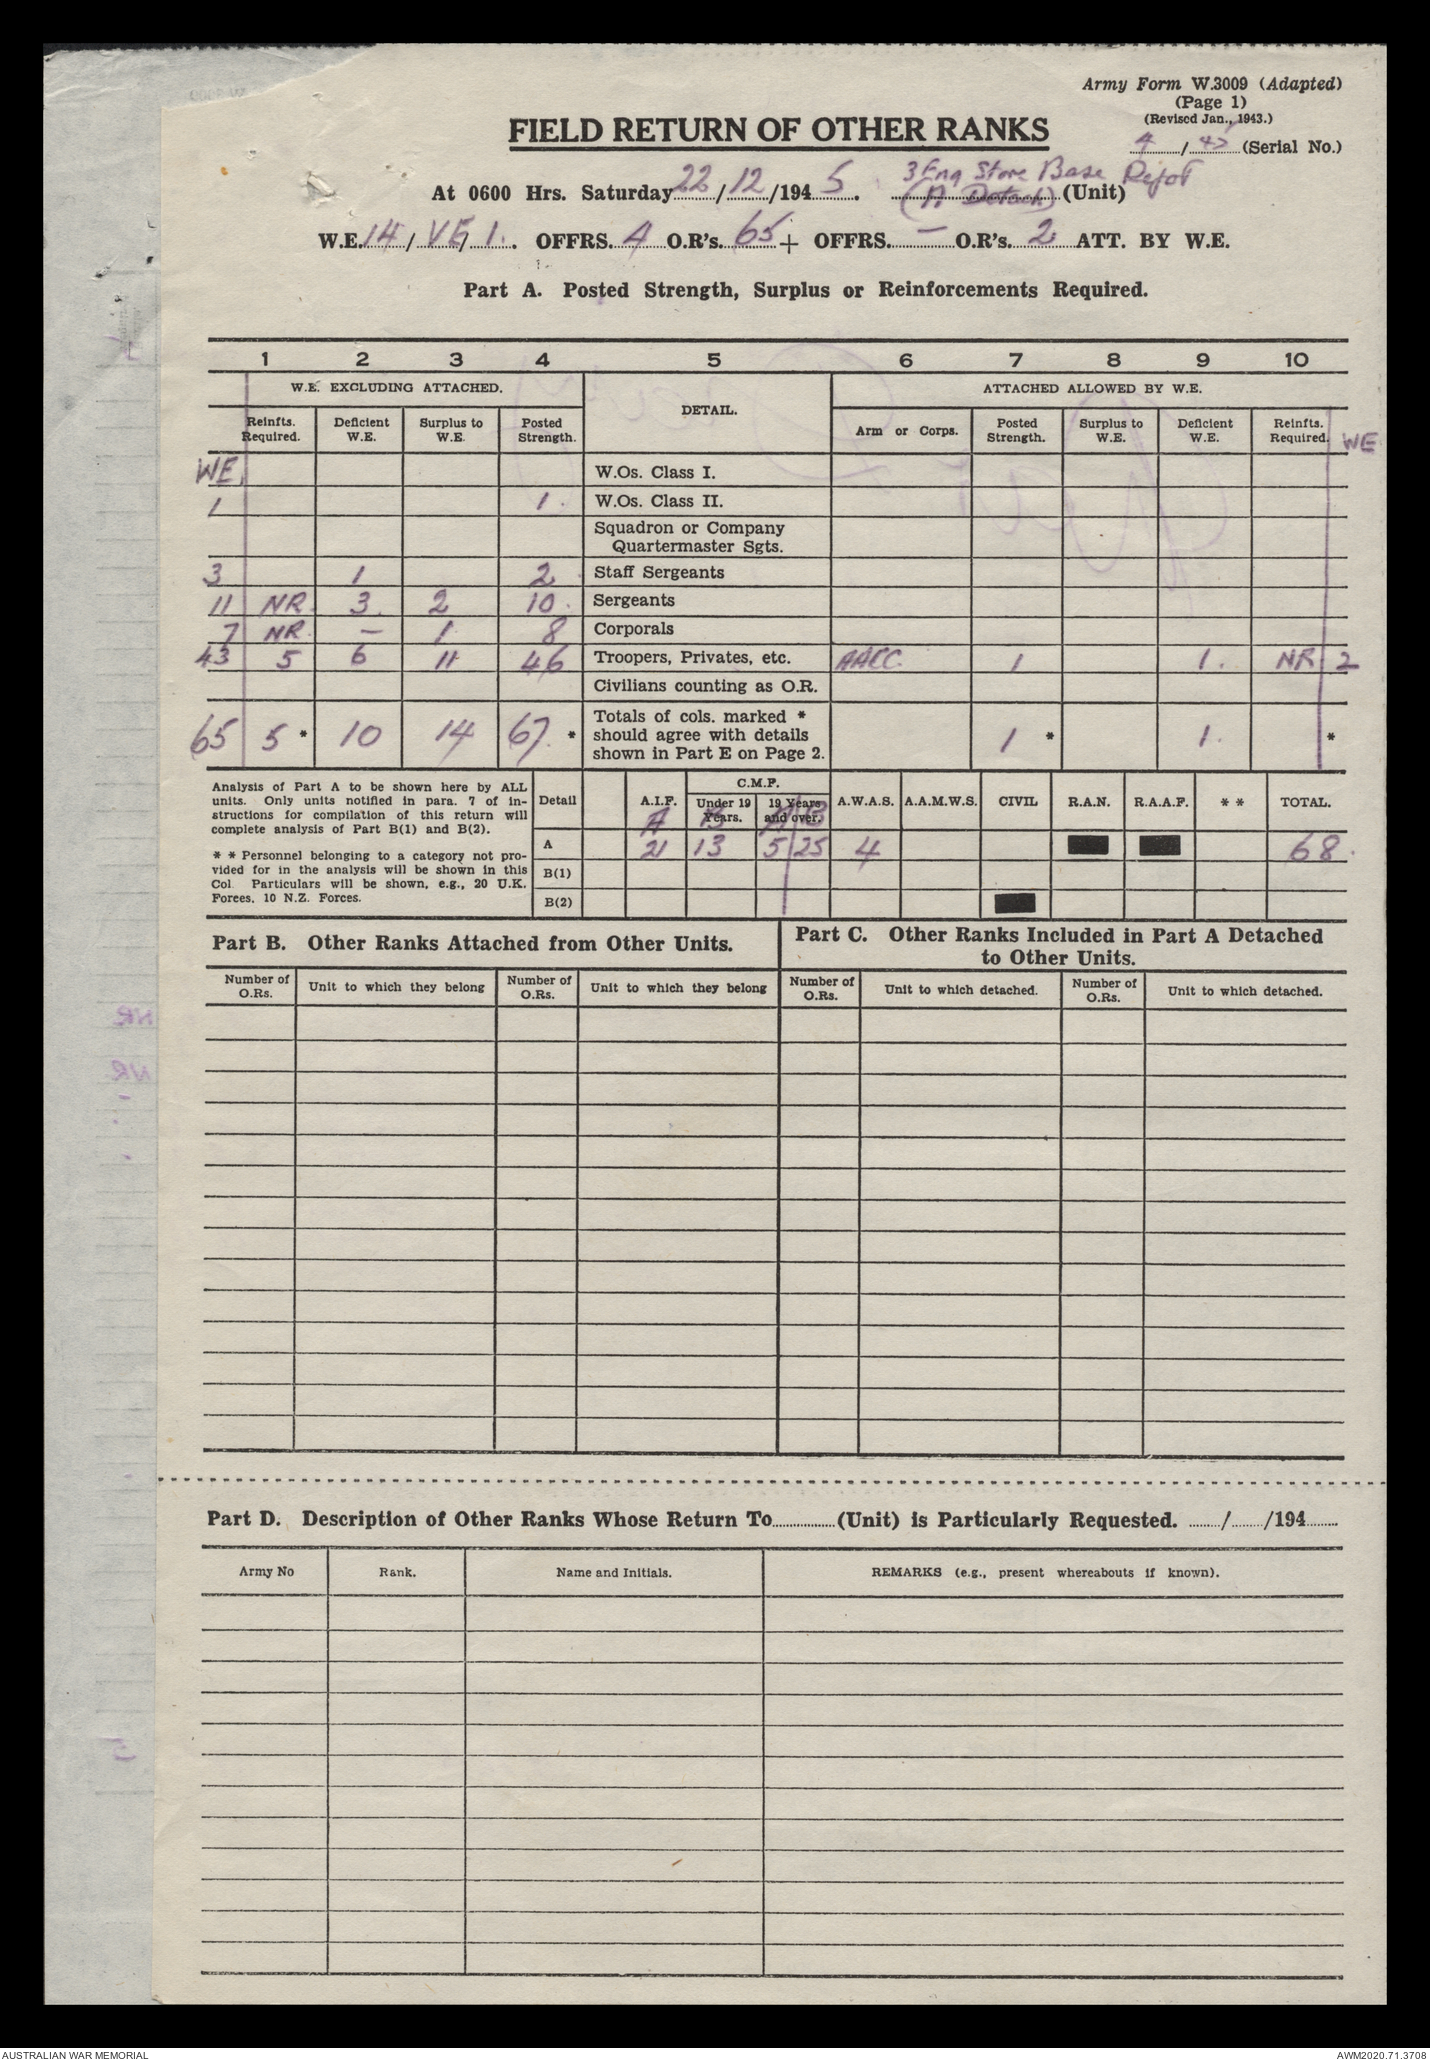 Army Form W.3009 (Adapted)
(Page 1)
(Revised Jan., 1943.)
FIELD RETURN OF OTHER RANKS
4/45 (Serial No.)
At 0600 Hrs. Saturday 22/12/1945. 3 Eng Store Base Depot
(A Detach) (Unit)
W.E. 14/VE/1. OFFRS. 4 O.R's. 65 + OFFRS. — O.R's. 2 ATT. BY W.E.
Part A. Posted Strength, Surplus or Reinforcements Required.
1 2 3 4 5 6 7 8 9 10
W.E. EXCLUDING ATTACHED. DETAIL. ATTACHED ALLOWED BY W.E.
Reinfts. Required. Deficient W.E. Surplus to W.E. Posted Strength. Arm or Corps. Posted Strength. Surplus to W.E. Deficient W.E. Reinfts. Required. WE
WE W.Os. Class I.
1 1. W.Os. Class II.
Squadron or Company
Quartermaster Sgts.
3 1 2 Staff Sergeants
11 NR 3 2 10 Sergeants
7 NR — 1 8 Corporals
43 5 6 11 46 Troopers, Privates, etc. AACC 1 1. NR 2
Civilians counting as O.R.
65 5 * 10 14 67 * Totals of cols. marked * 1 * 1. *
should agree with details
shown in Part E on Page 2.
Analysis of Part A to be shown here by ALL
units. Only units notified in para. 7 of in-
structions for compilation of this return will
complete analysis of Part B(1) and B(2).
* * Personnel belonging to a category not pro-
vided for in the analysis will be shown in this
Col. Particulars will be shown, e.g., 20 U.K.
Forces, 10 N.Z. Forces.
C.M.F.
Detail A.I.F. Under 19 Years. 19 Years and over. A.W.A.S. A.A.M.W.S. CIVIL R.A.N. R.A.A.F. * * TOTAL.
A B A B
A 21 13 5 25 4 68.
B(1)
B(2)
Part B. Other Ranks Attached from Other Units.
Part C. Other Ranks Included in Part A Detached
to Other Units.
Number of O.Rs. Unit to which they belong Number of O.Rs. Unit to which they belong Number of O.Rs. Unit to which detached. Number of O.Rs. Unit to which detached.
Part D. Description of Other Ranks Whose Return To............(Unit) is Particularly Requested. ......./......./194.......
Army No Rank. Name and Initials. REMARKS (e.g., present whereabouts if known).
AUSTRALIAN WAR MEMORIAL AWM2020.71.3708